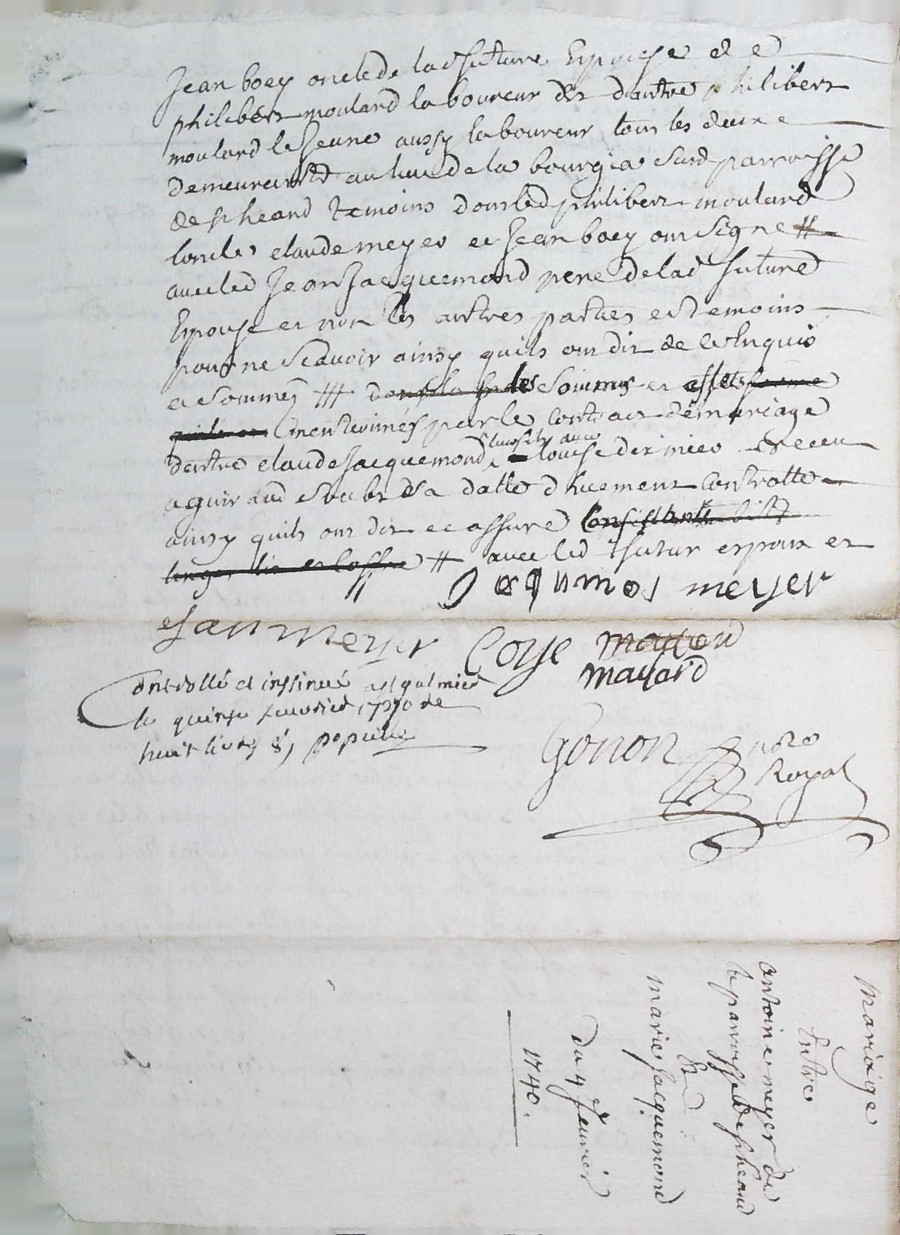 Jean boey oncle de lad future Epouse et e
philibert moulard laboureur et dautre philibert
moulard le Jeune aussy laboureur tous les deux
demeurants au lieu de la bourgia sud parroisse
de st heand temoins dont led philibert moulard
loncle, claude meyer et Jean boey ont signe #
avec led Jean Jacquemond pere de lad future
Epouse et non les autres parties et temoins
pour ne scavoir ainsy quils ont dit de ce Enquis
et sommes ## des sommes et effets
mentionnes par le contrat de mariage
dentre claude Jacquemond louise dernier Receu
a guiraud soubs sa datte duement controlle
ainsy quils ont dit et assure Consistants
linges lit et coffre # avec led futur espoux et
Jaqumos meyer
ejan meyer Coye mayard
mayard
Controllé et insinué a st galmier
le quinze feuvrier 1740 Re
huit livres 8s
Gonon nore
Royal
Mariage
Entre
antoine meyer de
la parroisse de st heand
Et
marie Jacquemond
Du 4 feurier
1740.